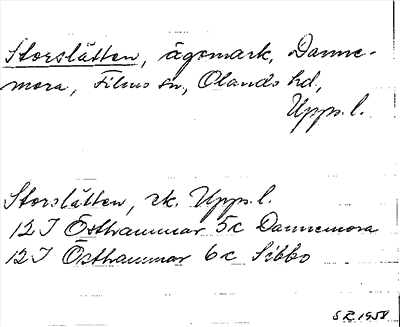 Storslätten, ägomark, Danne-
mora, Films sn., Olands hd.,
Upps. l.
Storslätten, rk. Upps. l.
12 I Östhammar 5c Dannemora
12 I Östhammar 6c Sibbo
S R. 1958